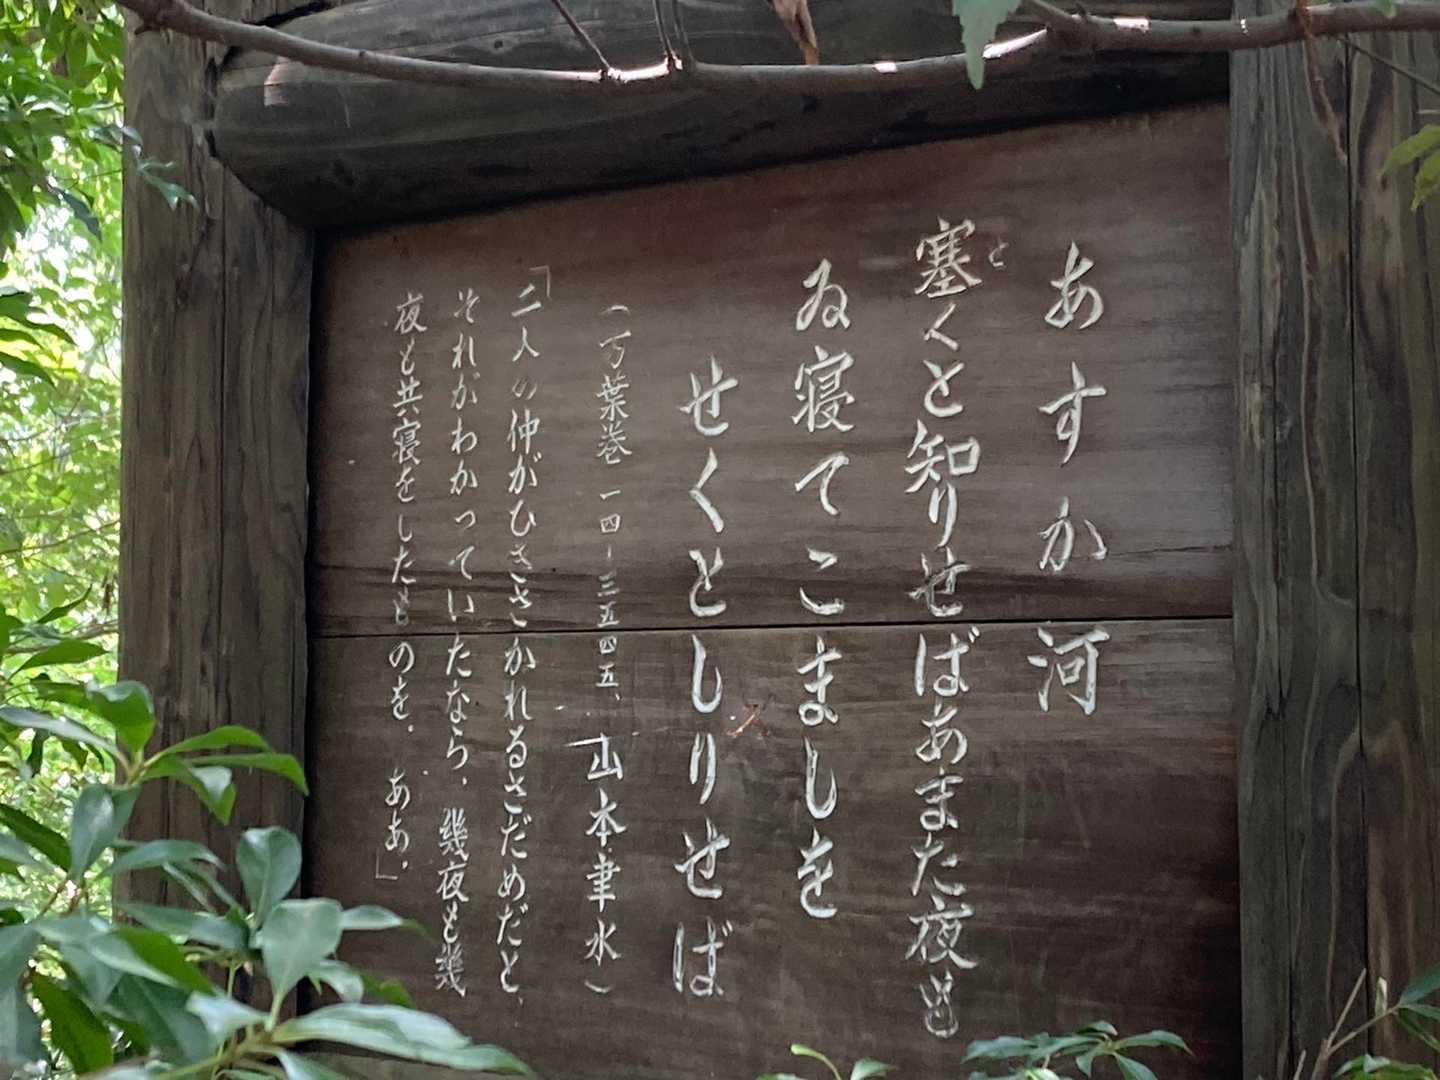 あすか河
塞くと知りせばあまた夜も
と
ゐ寝てこましを
せくとしりせば
(万葉巻一四－三五四五、山本聿水)
「二人の仲がひきさかれるさだめだと、
それがわかっていたなら、幾夜も幾
夜も共寝をしたものを。ああ。」